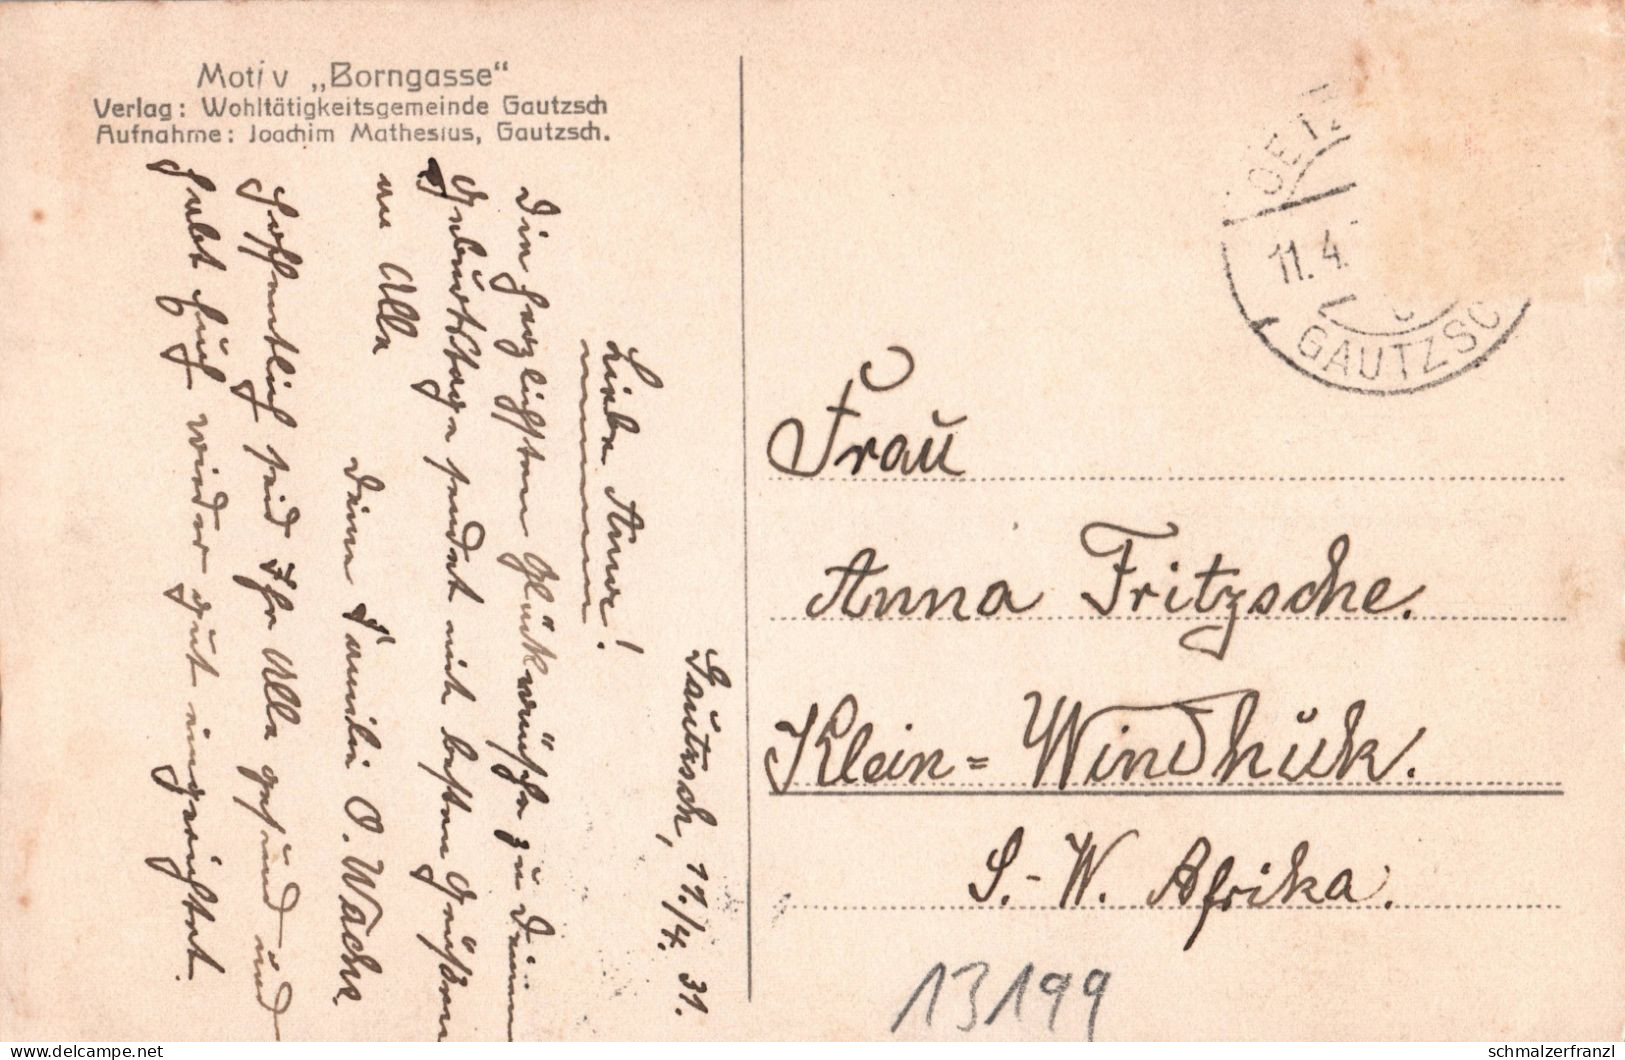 Motiv „Borngasse“
Verlag: Wohltätigkeitsgemeinde Gautzsch
Aufnahme: Joachim Mathesius, Gautzsch.
Gautzsch, 11./4. 31.
Liebe Anna!
Die herzlichsten Glückwünsche zu Deinem
Geburtstage sendet mit besten Grüßen
an Alle
Deine Familie O. Wache
Hoffentlich seid Ihr Alle gesund und
habt Euch wieder gut eingerichtet.
OETZ
11.4.
GAUTZSC
Frau
Anna Fritzsche.
Klein=Windhuk.
S.-W. Afrika.
13199
www.delcampe.net
schmalzerfranzl